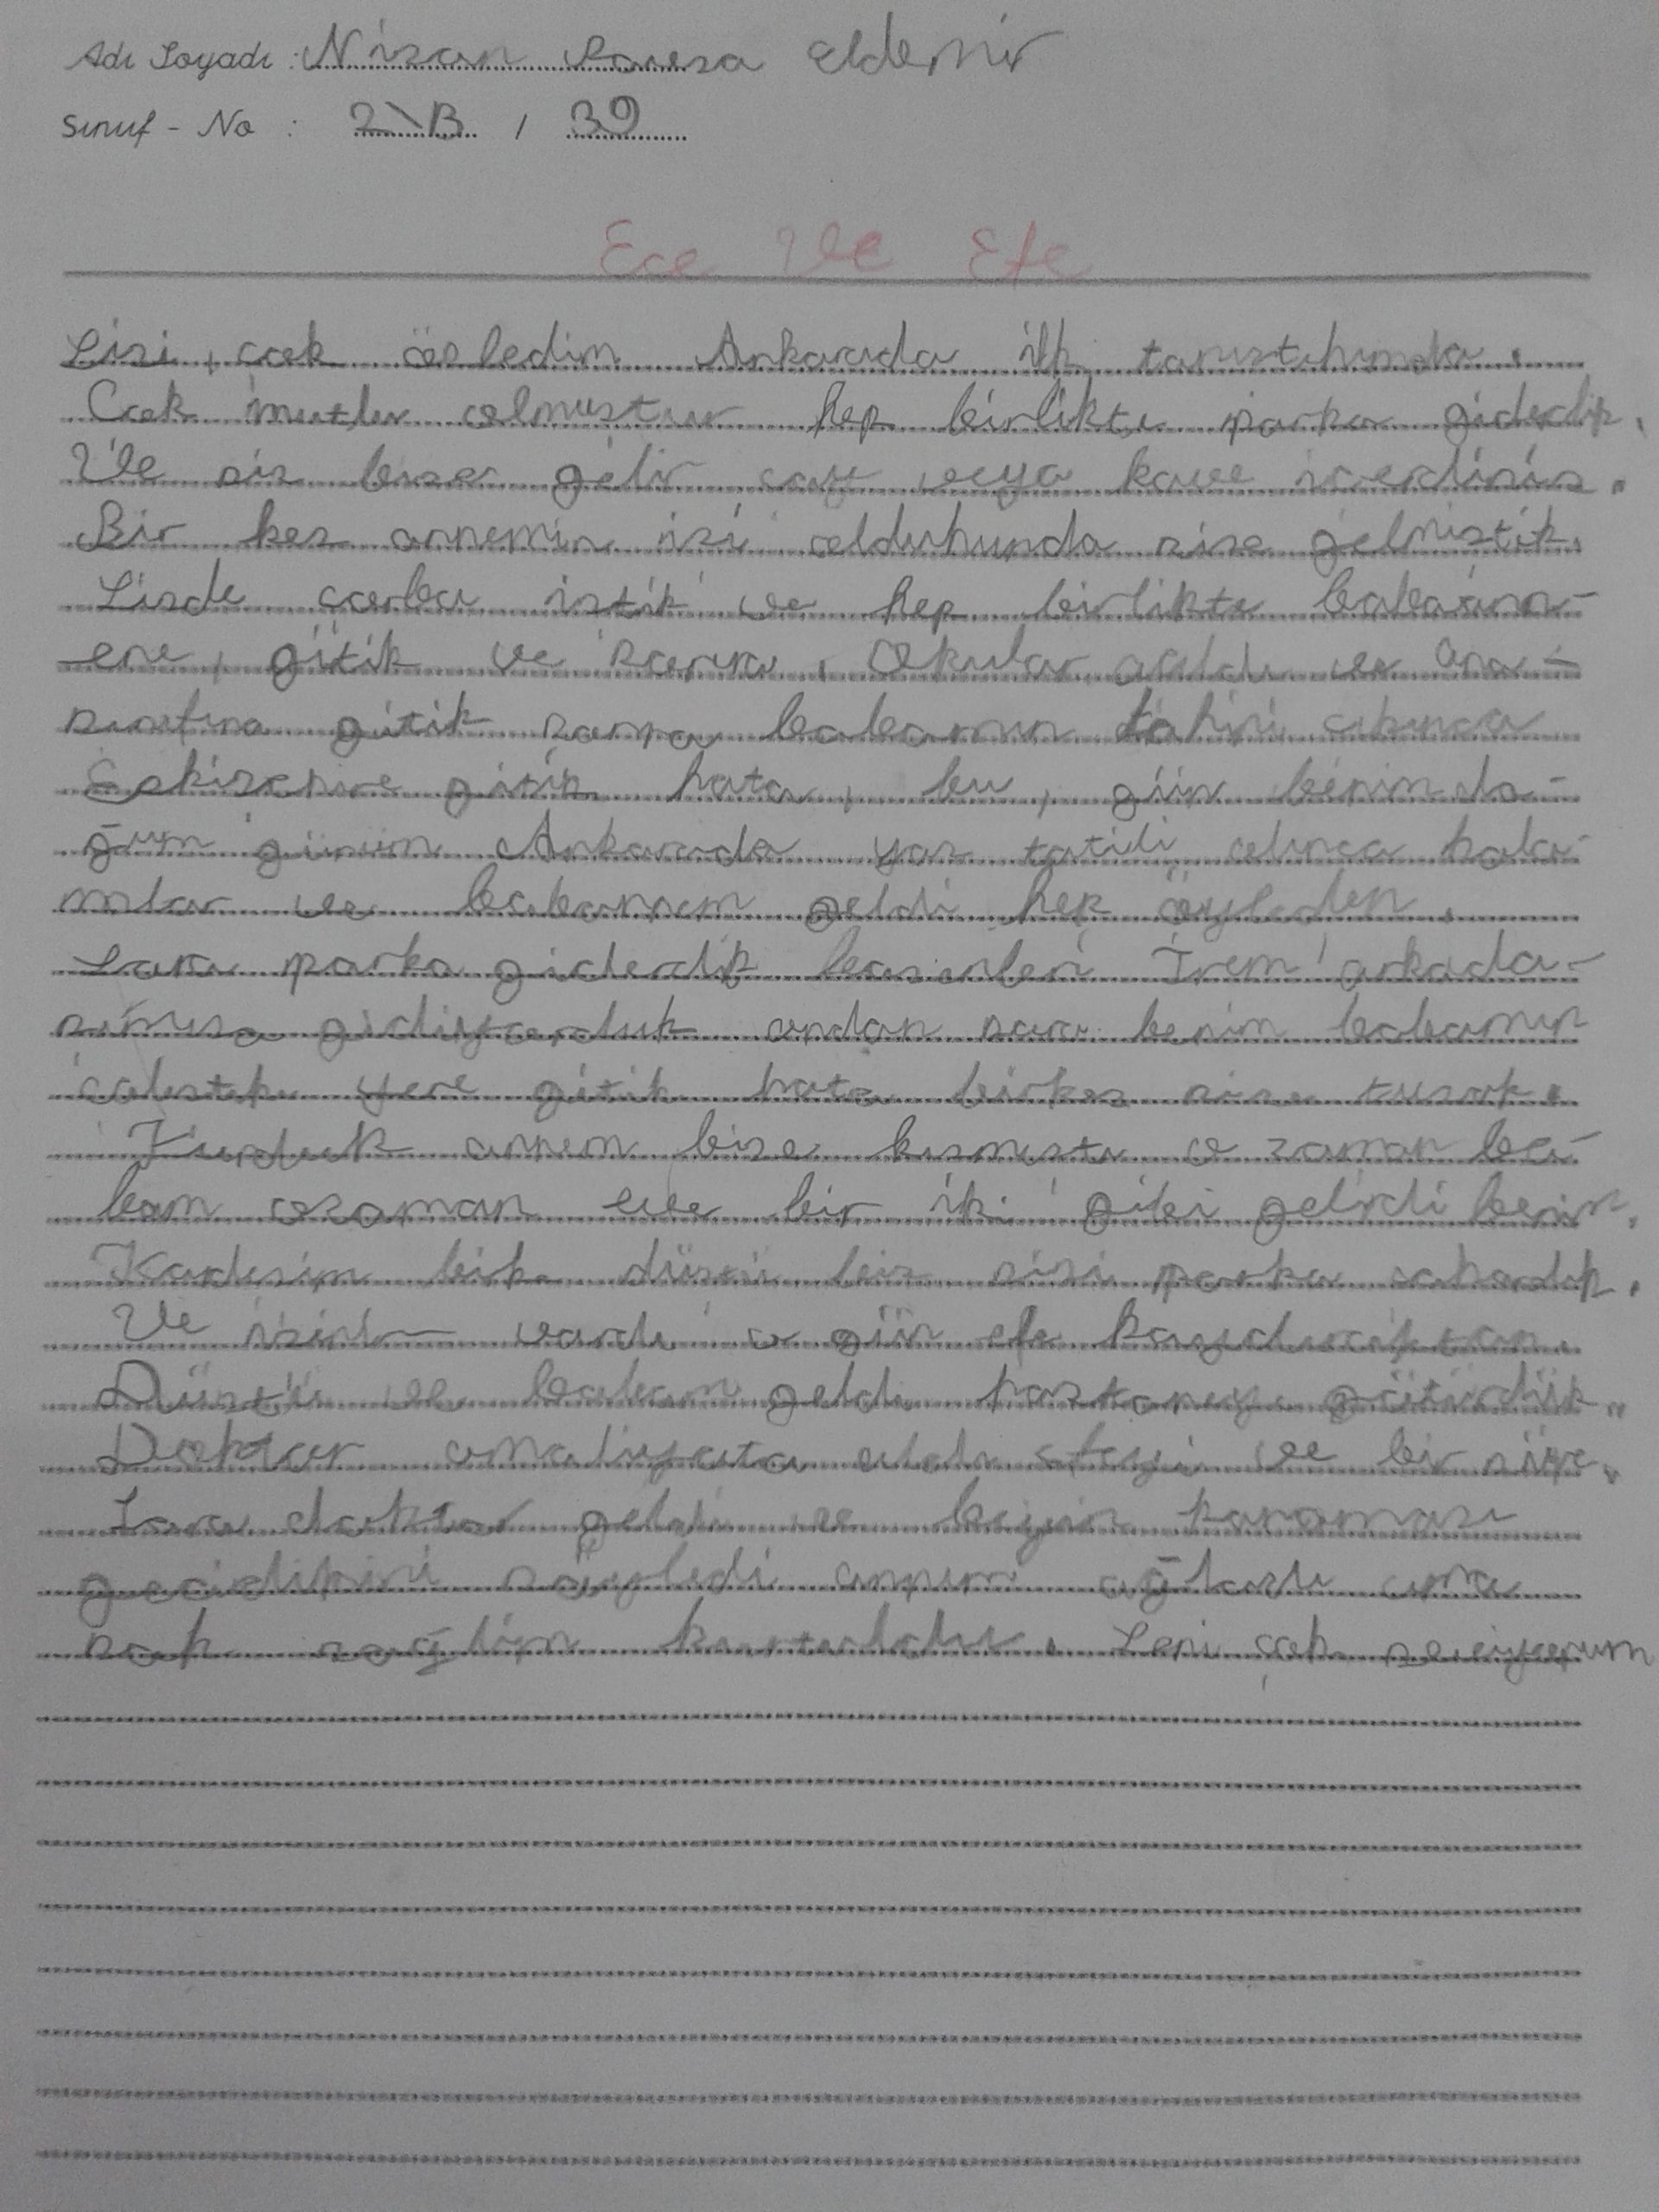 Adı Soyadı : Nisan Eldemir
Sınıf - No : 2\B / 39
Ece Ve Efe
Sizi, cok özledim Ankarada ilk tanıstıhımda.
Cok mutlu olmustur hep birlikte parka giderdik.
Ve siz bize gelir cay veya kave icerdiniz.
Bir kez annemin isi olduhunda size gelmistik.
Sizde corba istik ve hep birlikte babaann-
ene, gitik ve sonra, Okular acıldı ve ana-
sınıfına gitik sonra babamın tahini cıkınca
Eskisehire gitik hata, bu, gün benim do-
ğum günüm Ankarada yaz tatili olunca hala-
mlar ve babannem geldi hep öyleden.
Sora parka giderdik bazenleri İrem arkada-
sımıza gidiyorduk ondan sora benim babamın
calıstıkı yere gitik hata birkez size tuzak.
Kurduk annem bize kızmıstı o zaman ba-
bam ozaman eve bir iki gibi gelirdi benim.
Kardesim bik düstü biz sizi parka cahırdık.
Ve iziniz vardı o gün efe kaydıraktan.
Düstü ve babam geldi hastaneye götürdük.
Doktor amaliyata aldı efeyi ve bir süre.
Sora doktor geldi ve beyin kanaması
gecirdikini söyledi annem ağladı ama
sak sağlim kurtuldu. Seni çok seviyorum